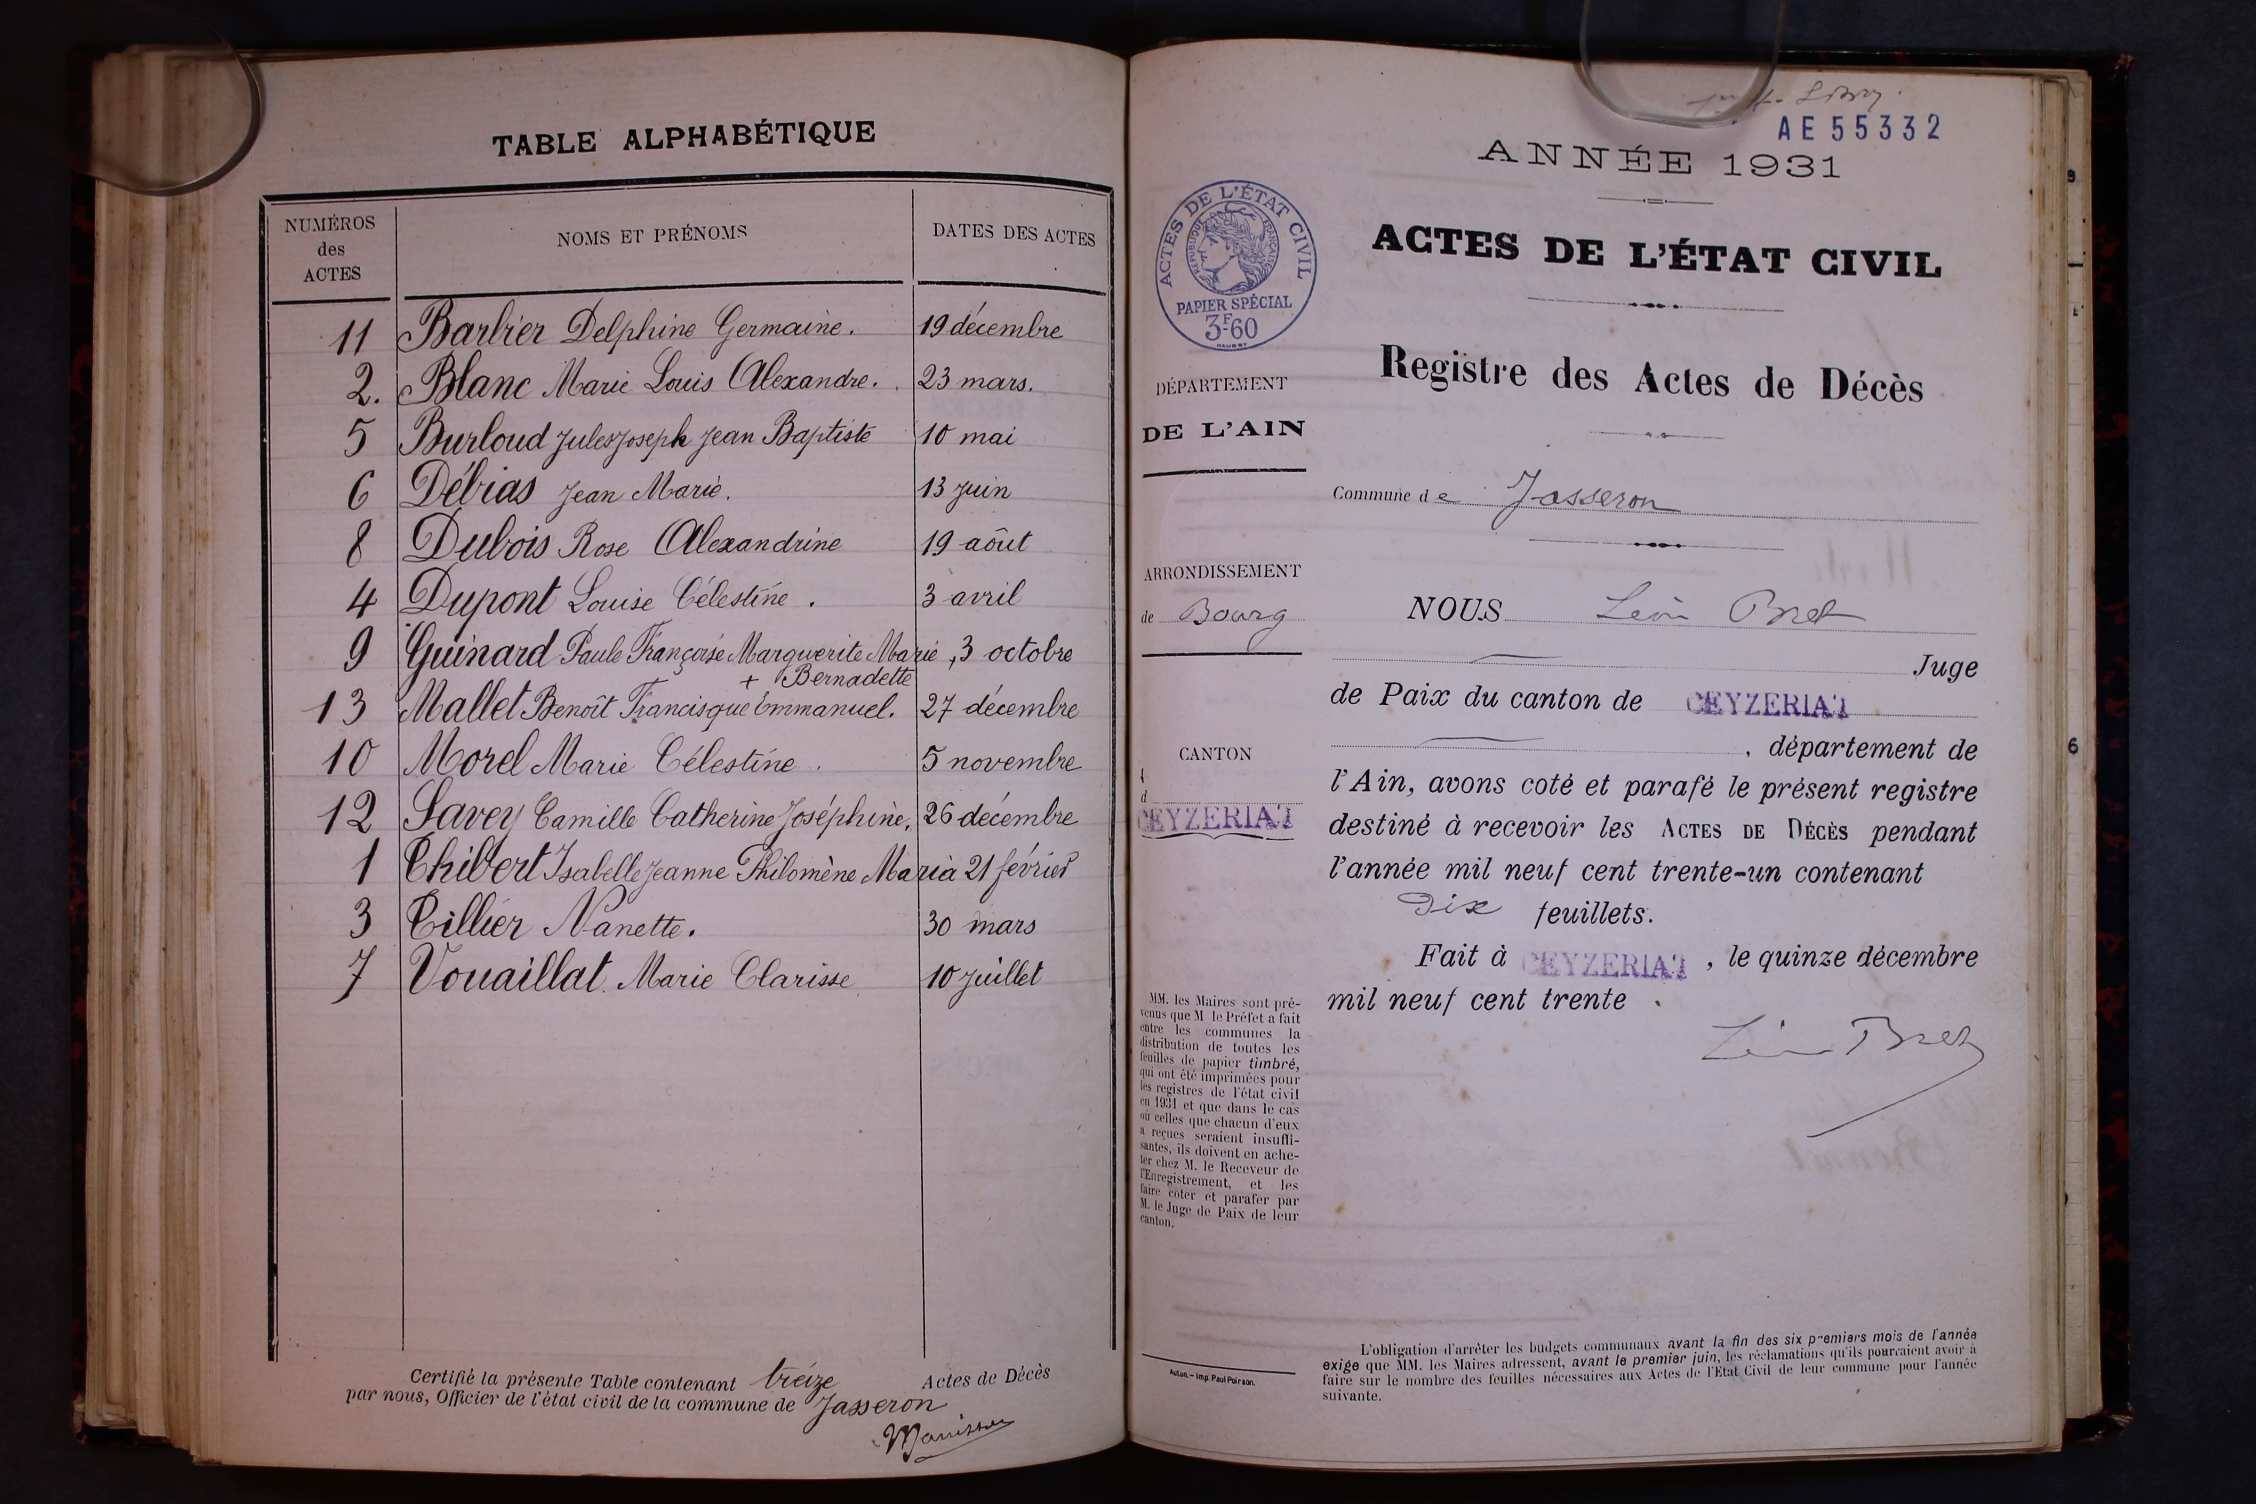 TABLE ALPHABÉTIQUE
NUMÉROS
des
ACTES
NOMS ET PRÉNOMS
DATES DES ACTES
11 Barbier Delphine Germaine. 19 décembre
2. Blanc Marie Louis Alexandre. 23 mars.
5 Burloud Jules Joseph Jean Baptiste 10 mai
6 Débias Jean Marie. 13 juin
8 Dubois Rose Alexandrine 19 aôut
4 Dupont Louise Célestine. 3 avril
9 Guinard Paule Françoise Marguerite Marie, 3 octobre
+ Bernadette
13 Mallet Benoît Francisque Emmanuel. 27 décembre
10 Morel Marie Célestine. 5 novembre
12 Savey Camille Catherine Joséphine. 26 décembre
1 Thibert Isabelle Jeanne Philomène Maria 21 février
3 Tillier Nanette. 30 mars
7 Vouaillat Marie Clarisse 10 juillet
Certifié la présente Table contenant treize Actes de Décès
par nous, Officier de l'état civil de la commune de Jasseron
AE 55332
ANNÉE 1931
ACTES DE L'ÉTAT CIVIL
RÉPUBLIQUE FRANÇAISE
PAPIER SPÉCIAL
3F.60
ACTES DE L'ÉTAT CIVIL
Registre des Actes de Décès
DÉPARTEMENT
DE L'AIN
Commune de Jasseron
ARRONDISSEMENT
de Bourg
NOUS Léon Bret
Juge
de Paix du canton de CEYZERIAT
, département de
CANTON
d
CEYZERIAT
l'Ain, avons coté et parafé le présent registre
destiné à recevoir les ACTES DE DÉCÈS pendant
l'année mil neuf cent trente-un contenant
Dix feuillets.
Fait à CEYZERIAT, le quinze décembre
mil neuf cent trente.
Léon Bret
MM. les Maires sont pré-
venus que M le Préfet a fait
entre les communes la
distribution de toutes les
feuilles de papier timbré,
qui ont été imprimées pour
les registres de l'état civil
en 1931 et que dans le cas
où celles que chacun d'eux
a reçues seraient insuffi-
santes, ils doivent en ache-
ter chez M. le Receveur de
l'Enregistrement, et les
faire coter et parafer par
M. le Juge de Paix de leur
canton.
Autun. – Imp. Paul Poirson.
L'obligation d'arrêter les budgets communaux avant la fin des six premiers mois de l'année
exige que MM. les Maires adressent, avant le premier juin, les réclamations qu'ils pourraient avoir à
faire sur le nombre des feuilles nécessaires aux Actes de l'État Civil de leur commune pour l'année
suivante.
6